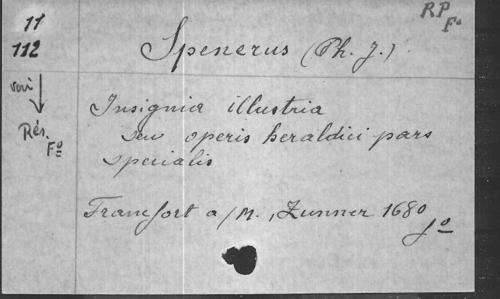 RP
Fo
11
112
Spenerus (Ph. J.)
voir
Rés.
Fo
Insignia illustria
seu operis heraldici pars
specialis
Francfort a/M., Zunner 1680
fo